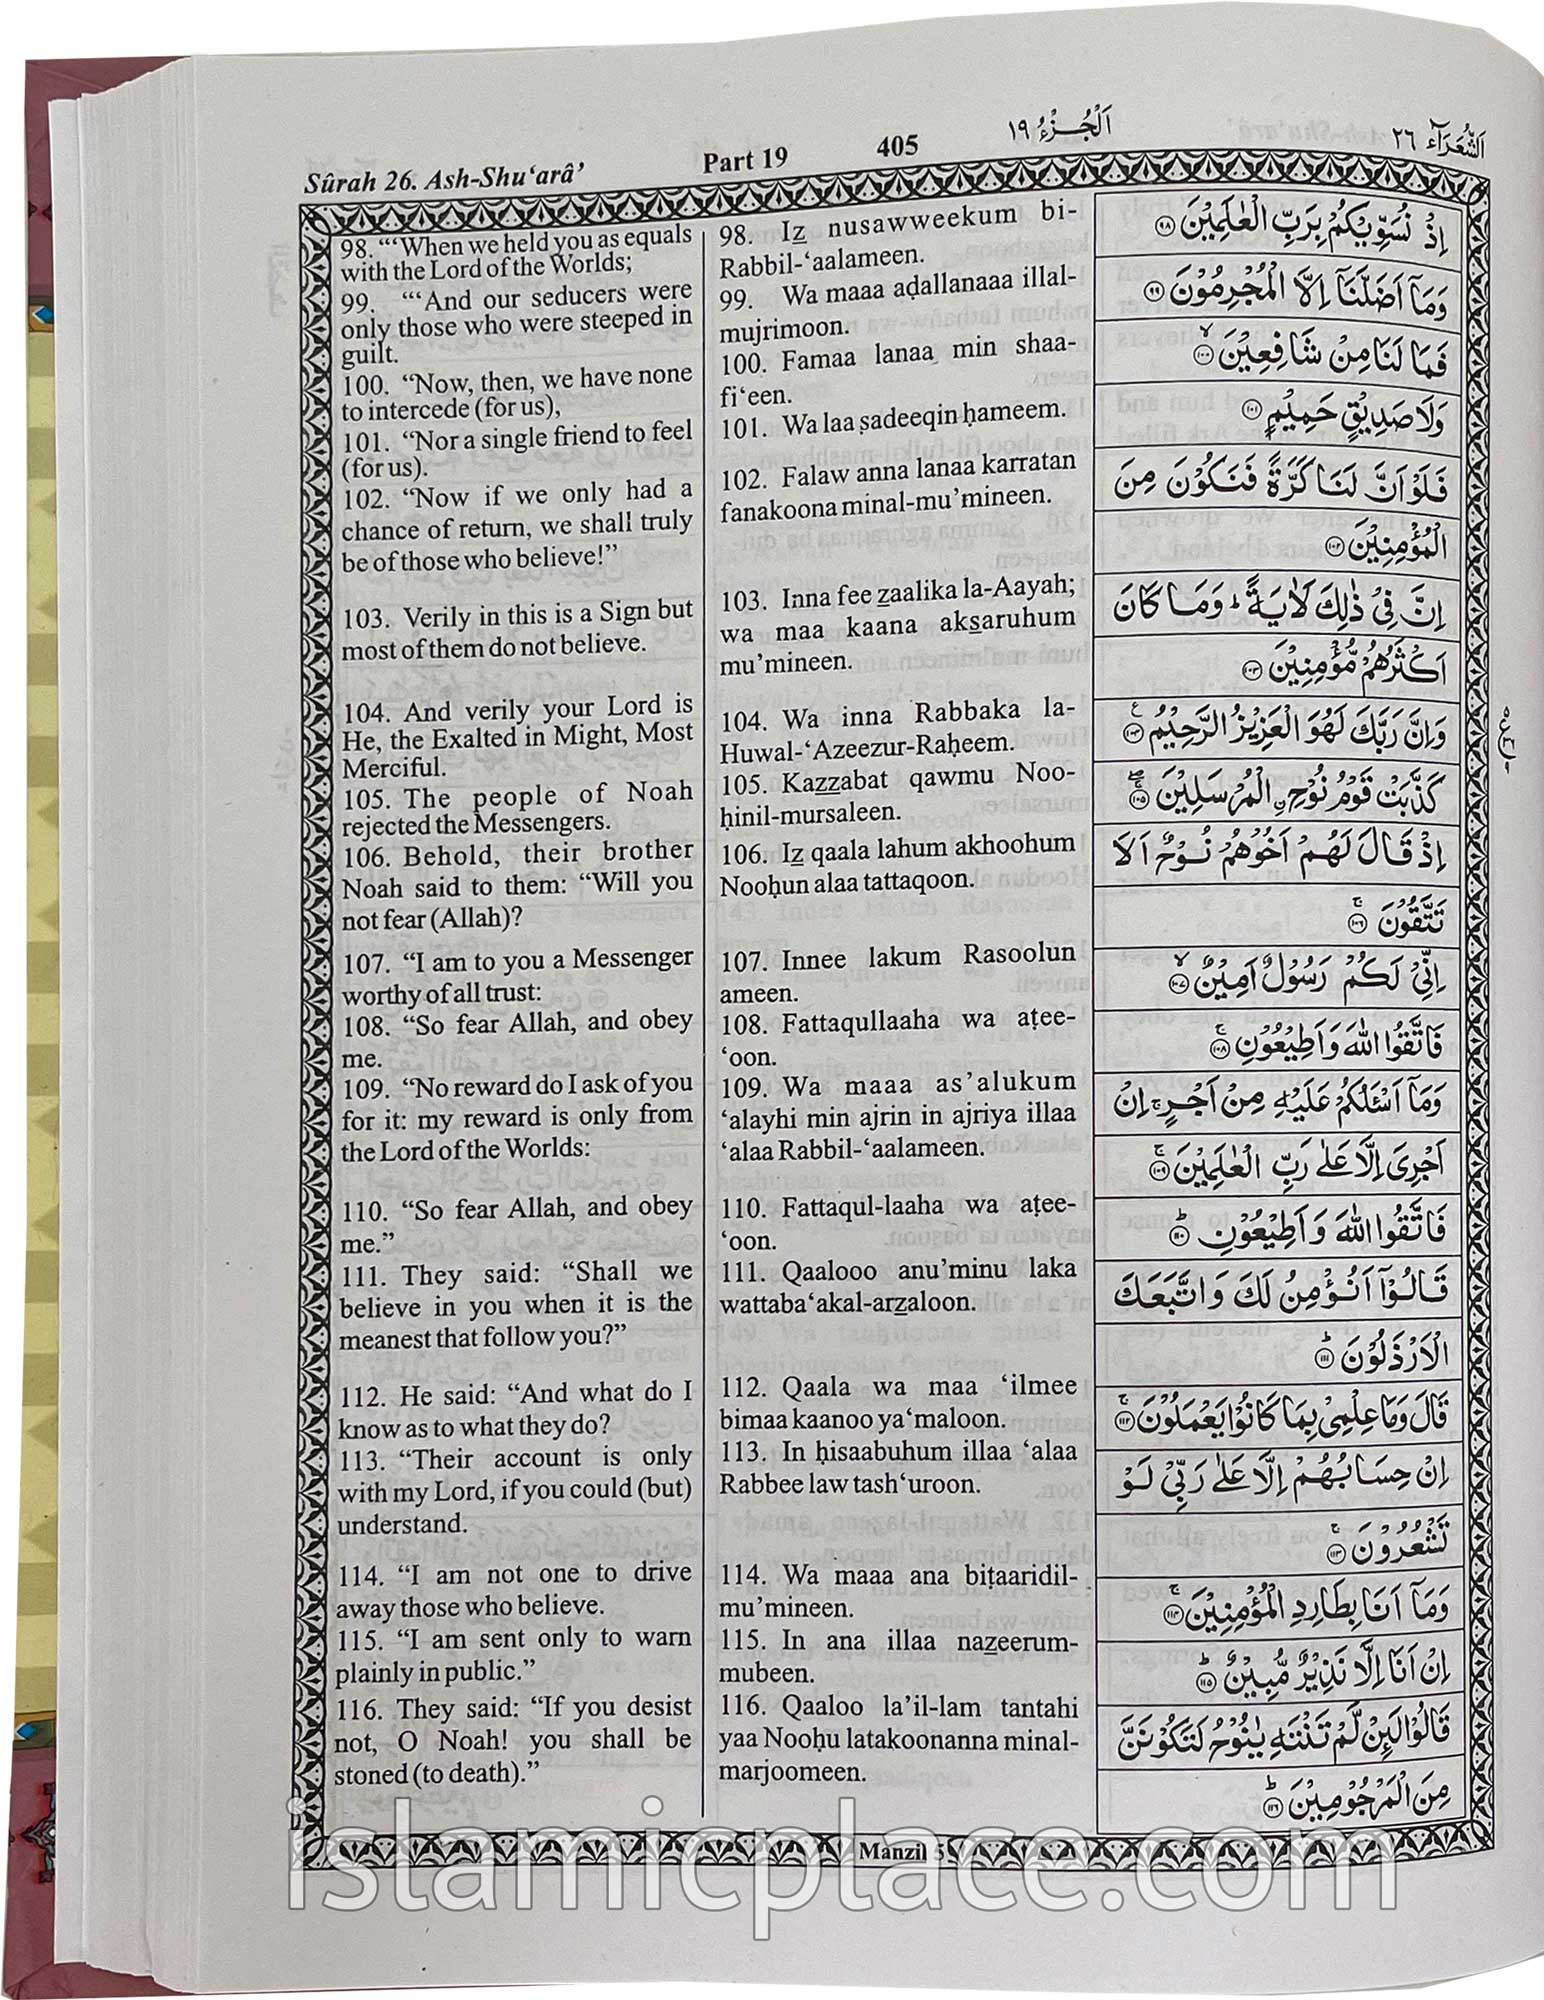 Sûrah 26. Ash-Shu‘arâ’
Part 19
405
اَلْجُزْءُ ١٩
اَلشُّعَرَآء ٢٦
98. “‘When we held you as equals
with the Lord of the Worlds;
99. “‘And our seducers were
only those who were steeped in
guilt.
100. “Now, then, we have none
to intercede (for us),
101. “Nor a single friend to feel
(for us).
102. “Now if we only had a
chance of return, we shall truly
be of those who believe!”
103. Verily in this is a Sign but
most of them do not believe.
104. And verily your Lord is
He, the Exalted in Might, Most
Merciful.
105. The people of Noah
rejected the Messengers.
106. Behold, their brother
Noah said to them: “Will you
not fear (Allah)?
107. “I am to you a Messenger
worthy of all trust:
108. “So fear Allah, and obey
me.
109. “No reward do I ask of you
for it: my reward is only from
the Lord of the Worlds:
110. “So fear Allah, and obey
me.”
111. They said: “Shall we
believe in you when it is the
meanest that follow you?”
112. He said: “And what do I
know as to what they do?
113. “Their account is only
with my Lord, if you could (but)
understand.
114. “I am not one to drive
away those who believe.
115. “I am sent only to warn
plainly in public.”
116. They said: “If you desist
not, O Noah! you shall be
stoned (to death).”
98. Iz nusawweekum bi-
Rabbil-‘aalameen.
99. Wa maaa aḍallanaaa illal-
mujrimoon.
100. Famaa lanaa min shaa-
fi‘een.
101. Wa laa ṣadeeqin ḥameem.
102. Falaw anna lanaa karratan
fanakoona minal-mu’mineen.
103. Inna fee zaalika la-Aayah;
wa maa kaana aksaruhum
mu’mineen.
104. Wa inna Rabbaka la-
Huwal-‘Azeezur-Raḥeem.
105. Kazzabat qawmu Noo-
ḥinil-mursaleen.
106. Iz qaala lahum akhoohum
Nooḥun alaa tattaqoon.
107. Innee lakum Rasoolun
ameen.
108. Fattaqullaaha wa aṭee-
‘oon.
109. Wa maaa as’alukum
‘alayhi min ajrin in ajriya illaa
‘alaa Rabbil-‘aalameen.
110. Fattaqul-laaha wa aṭee-
‘oon.
111. Qaalooo anu’minu laka
wattaba‘akal-arzaloon.
112. Qaala wa maa ‘ilmee
bimaa kaanoo ya‘maloon.
113. In ḥisaabuhum illaa ‘alaa
Rabbee law tash‘uroon.
114. Wa maaa ana biṭaaridil-
mu’mineen.
115. In ana illaa nazeerum-
mubeen.
116. Qaaloo la’il-lam tantahi
yaa Nooḥu latakoonanna minal-
marjoomeen.
اِذْ نُسَوِّيْكُمْ بِرَبِّ الْعٰلَمِيْنَ ٩٨
وَمَآ اَضَلَّنَآ اِلَّا الْمُجْرِمُوْنَ ٩٩
فَمَا لَنَا مِنْ شَافِعِيْنَ ١٠٠
وَلَا صَدِيْقٍ حَمِيْمٍ ١٠١
فَلَوْ اَنَّ لَنَا كَرَّةً فَنَكُوْنَ مِنَ
الْمُؤْمِنِيْنَ ١٠٢
اِنَّ فِيْ ذٰلِكَ لَاٰيَةً ؕ وَمَا كَانَ
اَكْثَرُهُمْ مُّؤْمِنِيْنَ ١٠٣
وَاِنَّ رَبَّكَ لَهُوَ الْعَزِيْزُ الرَّحِيْمُ ١٠٤
كَذَّبَتْ قَوْمُ نُوْحِ ِ۟الْمُرْسَلِيْنَ ١٠٥
اِذْ قَالَ لَهُمْ اَخُوْهُمْ نُوْحٌ اَلَا
تَتَّقُوْنَ ١٠٦
اِنِّيْ لَكُمْ رَسُوْلٌ اَمِيْنٌ ١٠٧
فَاتَّقُوا اللّٰهَ وَاَطِيْعُوْنِ ١٠٨
وَمَآ اَسْـَٔلُكُمْ عَلَيْهِ مِنْ اَجْرٍ ۚ اِنْ
اَجْرِيَ اِلَّا عَلٰى رَبِّ الْعٰلَمِيْنَ ١٠٩
فَاتَّقُوا اللّٰهَ وَاَطِيْعُوْنِ ١١٠
قَالُوْٓا اَنُؤْمِنُ لَكَ وَاتَّبَعَكَ
الْاَرْذَلُوْنَ ١١١
قَالَ وَمَا عِلْمِيْ بِمَا كَانُوْا يَعْمَلُوْنَ ١١٢
اِنْ حِسَابُهُمْ اِلَّا عَلٰى رَبِّيْ لَوْ
تَشْعُرُوْنَ ١١٣
وَمَآ اَنَا بِطَارِدِ الْمُؤْمِنِيْنَ ١١٤
اِنْ اَنَا اِلَّا نَذِيْرٌ مُّبِيْنٌ ١١٥
قَالُوْا لَىِٕنْ لَّمْ تَنْتَهِ يٰنُوْحُ لَتَكُوْنَنَّ
مِنَ الْمَرْجُوْمِيْنَ ١١٦
Manzil 5
islamicplace.com